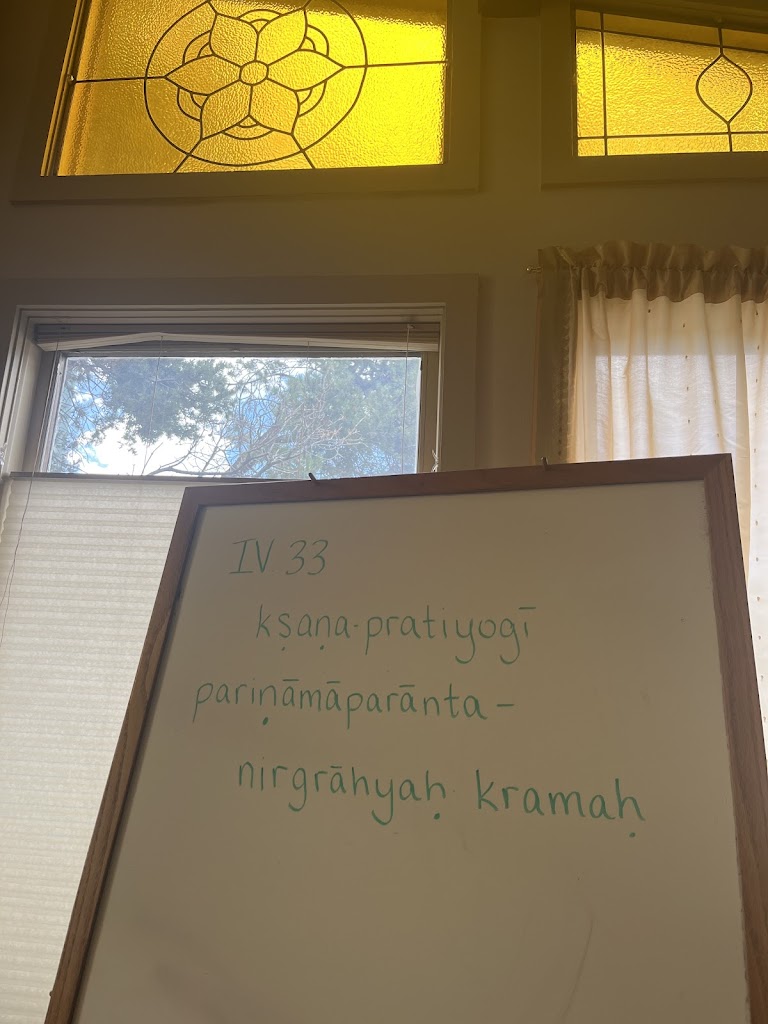 IV 33
kṣaṇa-pratiyogī
pariṇāmāparānta-
nirgrāhyaḥ kramaḥ